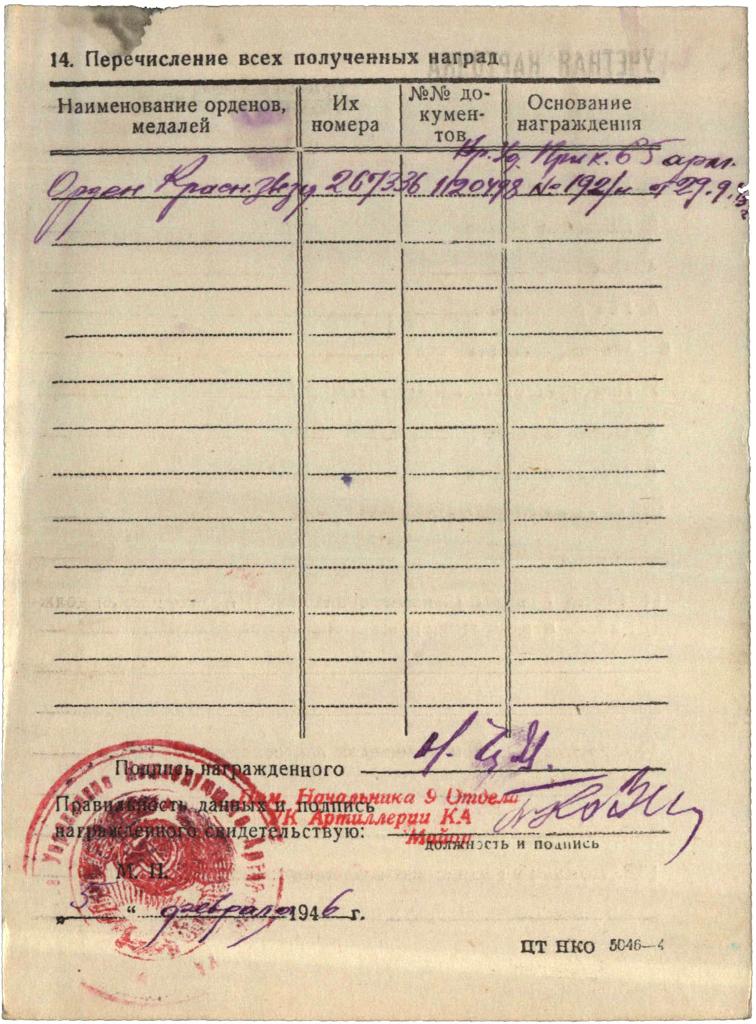 14. Перечисление всех полученных наград
Наименование орденов, медалей
Их номера
№№ документов
Основание награждения
Пр. 65 арм.
Орден Красн. Звезд 267336 1120498 № 192/н от 29.9.
Подпись награжденного
Правильность данных и подпись
награжденного свидетельствую:
Пом. Начальника 9 Отдела
УК Артиллерии КА
Майор
должность и подпись
М. П.
„ 5 “ февраля 1946 г.
ЦТ НКО 5046—4